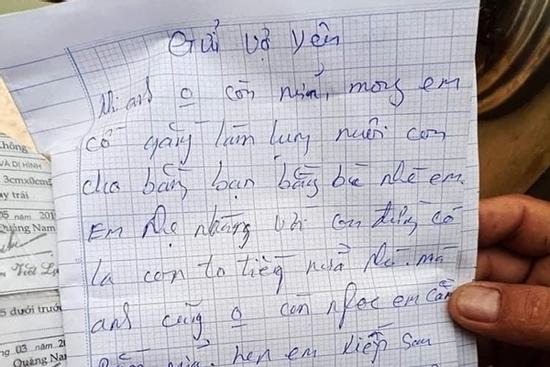 Gửi vợ yên
Khi anh o còn nữa, mong em
cố gắng làm lụng nuôi con
cho bằng bạn bằng bè nhé em.
Em nhẹ nhàng với con đừng có
la con to tiếng nữa nhé. mà
anh cũng o còn nghe em cằn
nữa. hẹn em kiếp sau
không
VÀ DỊ HÌNH
3cmx0cm
y trái
05 năm 201
Quảng Nam
Việt
5 dưới trước
ng 03 năm 2
Quảng Na